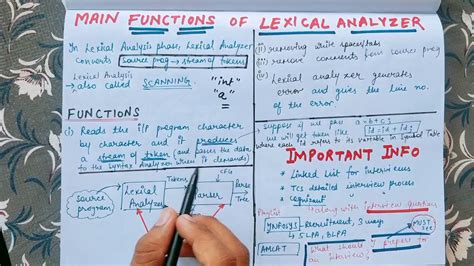 MAIN FUNCTIONS OF LEXICAL ANALYZER
In Lexical Analysis phase, Lexical Analyzer
converts source prog → stream of tokens
Lexical Analysis
→ also called SCANNING.
"int"
"a"
=
FUNCTIONS
(i) Reads the i/p program character
by character and it produces
a stream of token and passes the data
to the Syntax Analyzer when it demands)
Tokens
CFG
Source
program
Lexical
Analyzer
Parser
Parse
Tree
(ii) removing white spaces/tabs
(iii) remove comments from source prog
(iv) Lexical analyzer generates
error and gives the line no.
of the error.
Suppose if we pass a=b+c;
we will get token like id=id+id;
where each id refers to its var in Symbol Table
IMPORTANT INFO
* Linked List for Interviews
* Tcs detailed interview process
* cognizant
Playlist along with interview questions
INFOSYS → Recruitment, 3 ways
→ 5LPA, 8LPA
MUST
SEE
AMCAT
What should
an interview
prepare for